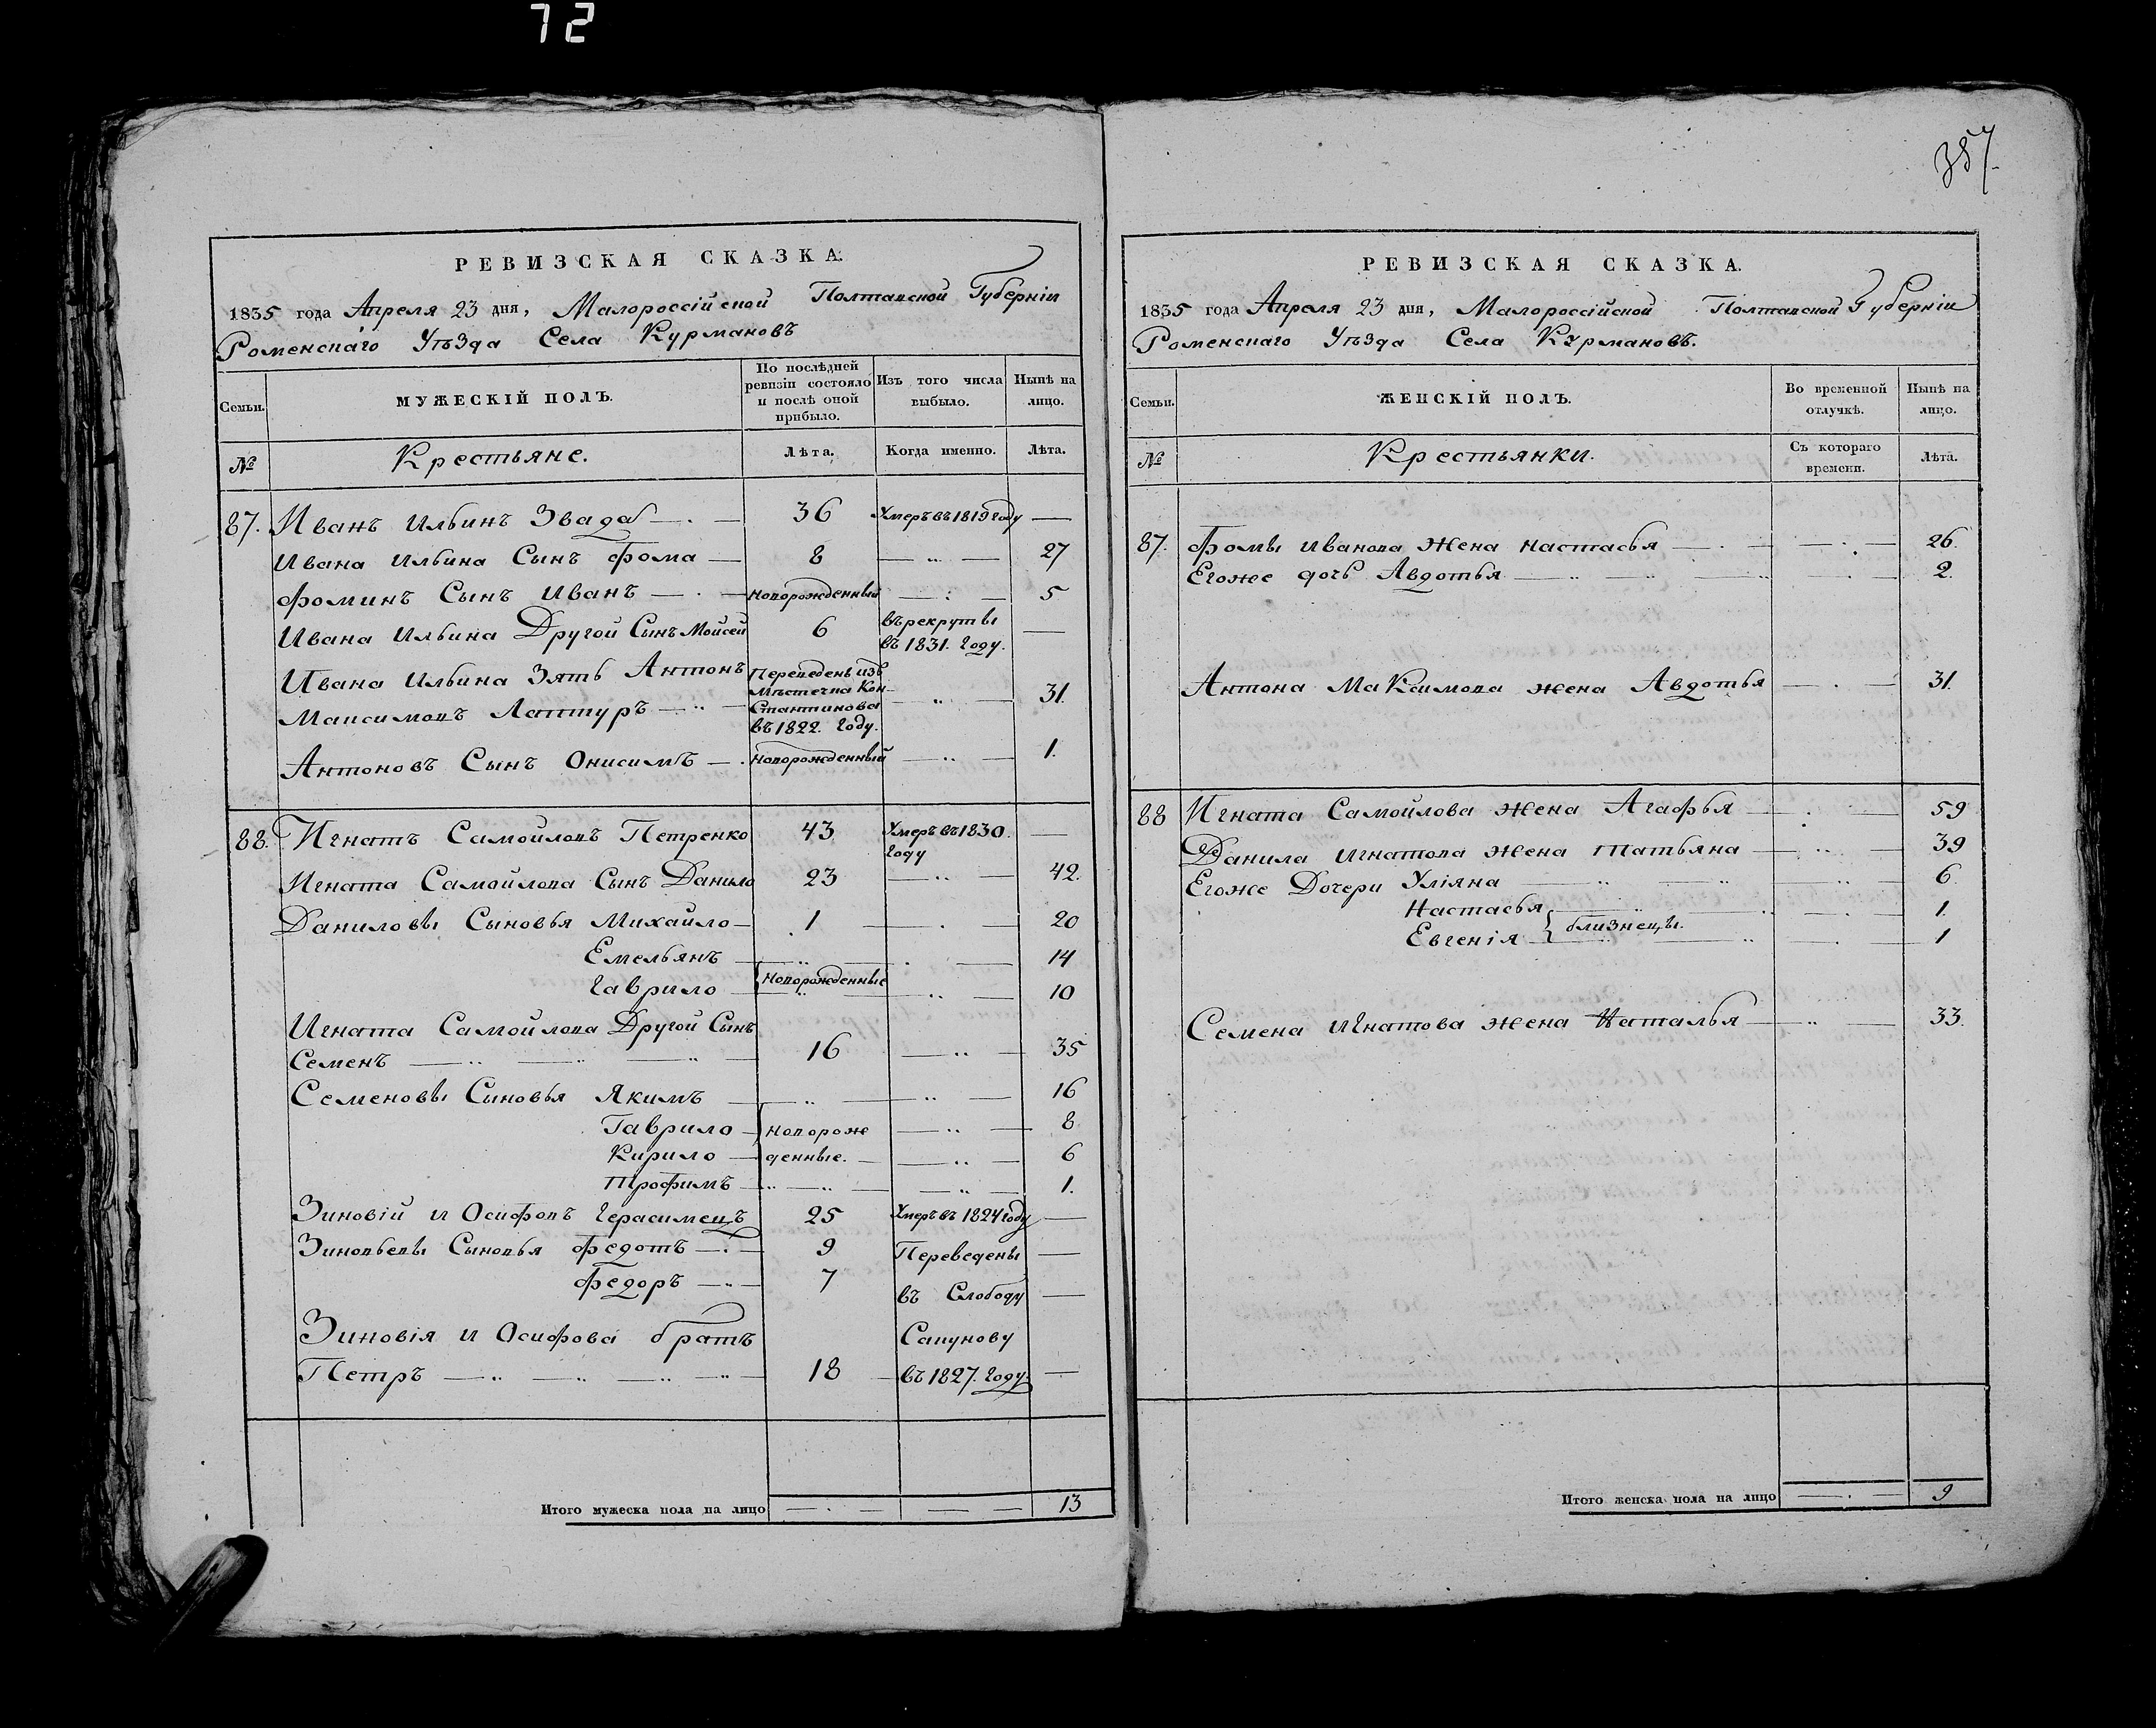 72
357.
РЕВИЗСКАЯ СКАЗКА.
1835 года Апреля 23 дня, Малороссійской Полтавской Губерніи
Роменскаго Уѣзда Села Курмановъ
Семьи.
МУЖЕСКІЙ ПОЛЪ.
По послѣдней ревизіи состояло и послѣ оной прибыло.
Изъ того числа выбыло.
Нынѣ на лицо.
№
Крестьяне.
Лѣта.
Когда именно.
Лѣта.
87. Иванъ Ильинъ 36 Умеръ въ 1819 году —
Ивана Ильина Сынъ Фома — 8 — „ — 27
Фоминъ Сынъ Иванъ — . — Новорожденный — . — 5
Ивана Ильина Другой Сынъ Мойсей 6 въ рекруты —
въ 1831. Году.
Ивана Ильина Зять Антонъ Переведенъ изъ
Мѣстечка Кон-
Максимовъ Лаптуръ — „ — Стантинова — „ — 31.
въ 1822. Году.
Антоновъ Сынъ Онисимъ — . Новорожденный — „ — 1.
88. Игнатъ Самойловъ Петренко 43 Умеръ въ 1830. —
Году
Игната Самойлова Сынъ Данило 23 — „ — 42.
Даниловы Сыновья Михайло — 1 — . — 20
Емельянъ — „ — . — 14
Новорожденные
Гаврило — „ — „ — 10
Игната Самойлова Другой Сынъ
Семенъ — „ — „ — „ — 16 — „ — 35
Семеновы Синовья Якимъ — „ — „ — 16
Гаврило — Новорож — „ — 8
Кирило — денные. — — „ — 6
Трофимъ — „ — „ — — „ — 1.
Зиновій и Осифовъ Герасимецъ 25 Умеръ въ 1824 году —
Зиновьевы Сыновья Федотъ — . — 9 Переведены —
Федоръ — „ — 7
въ Слободу —
Зиновія и Осифова братъ Сапунову
Петръ — „ — „ — „ — „ — 18 — въ 1827. Году. —
Итого мужеска пола на лицо — . — — — 13
РЕВИЗСКАЯ СКАЗКА.
1835 года Апреля 23 дня, Малороссійской Полтавской Губерніи
Роменскаго Уѣзда Села Курмановъ.
Семьи.
ЖЕНСКІЙ ПОЛЪ.
Во временной отлучкѣ.
Нынѣ на лицо.
№
Крестьянки.
Съ котораго времени.
Лѣта.
87. Фомы Иванова Жена Настасья — . — — . — 26.
Егоже дочь Авдотья — „ — „ — „ — . — 2.
Антона Максимова жена Авдотья — . — 31.
88 Игната Самойлова Жена Агафья — . — 59
Данила Игнатова Жена Татьяна — „ — 39
Егоже Дочери Уліяна — „ — „ — „ — 6.
Настасья — „ — „ — . — 1.
близнецы.
Евгенія — „ — „ — . — 1
Семена Игнатова Жена Наталья — „ — 33.
Итого женска пола на лицо — . — 9